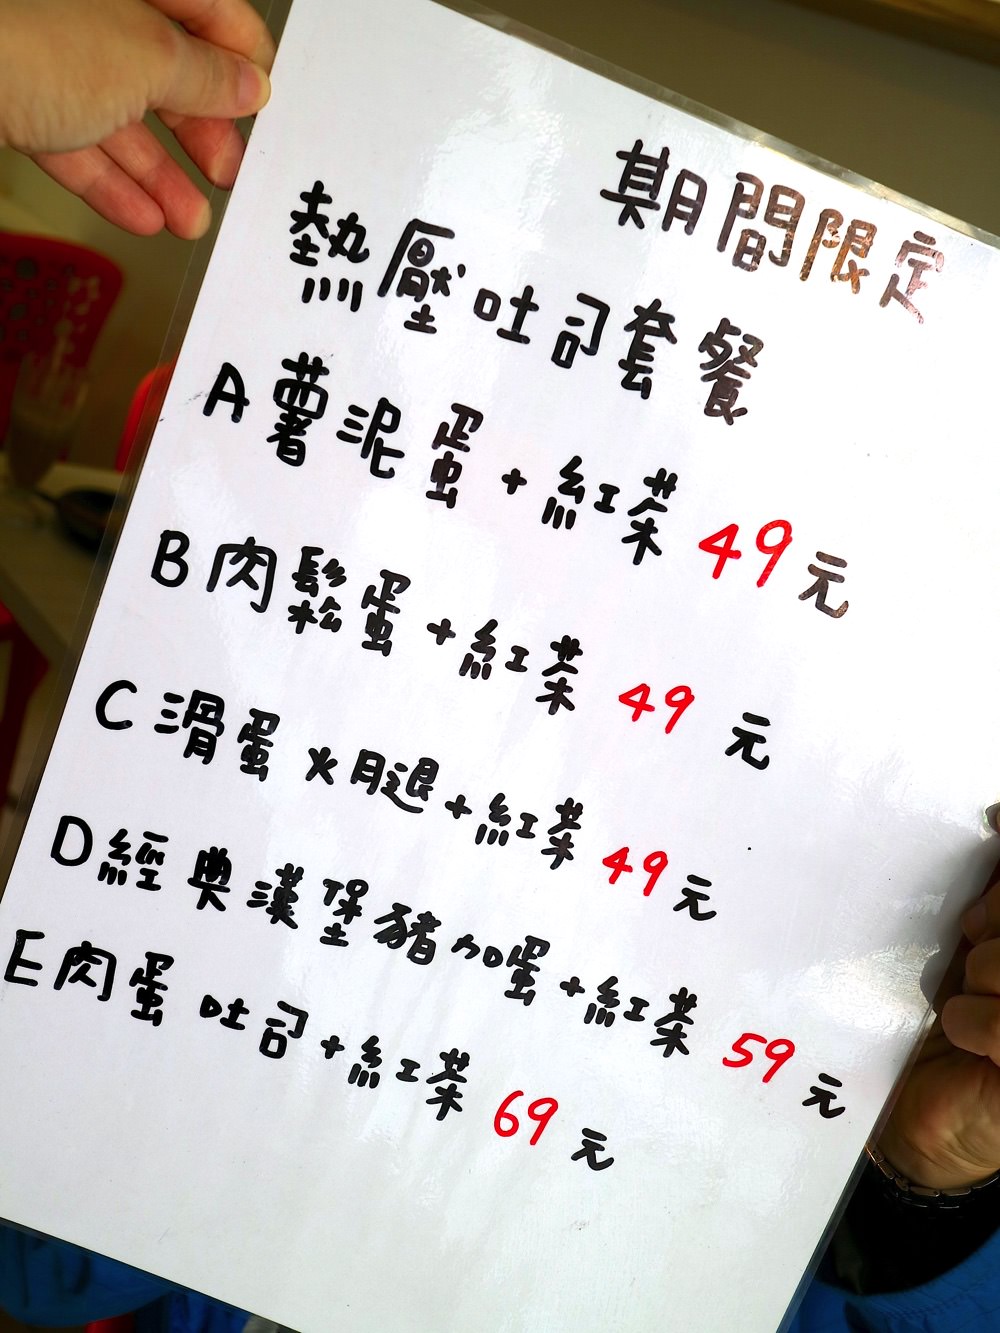 期間限定
熱壓吐司套餐
A 薯泥蛋+紅茶 49元
B 肉鬆蛋+紅茶 49 元
C 滑蛋火腿+紅茶 49元
D 經典漢堡豬加蛋+紅茶 59 元
E 肉蛋吐司+紅茶 69 元